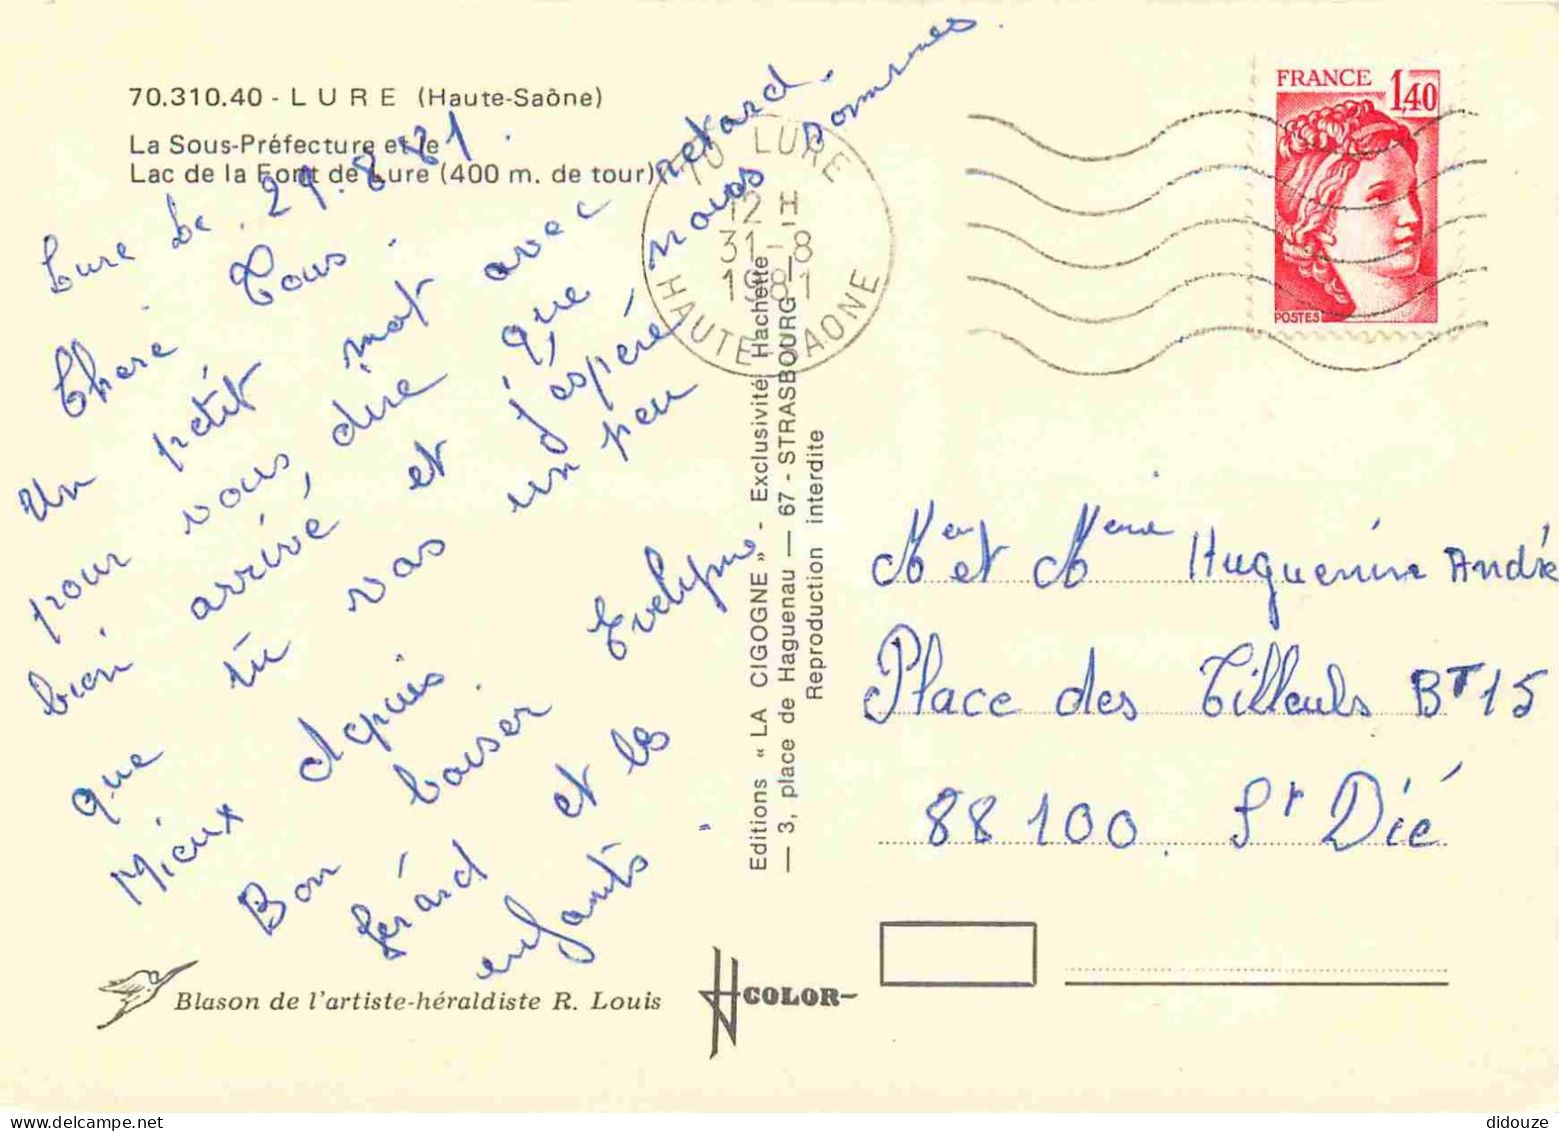 70.310.40 - LURE (Haute-Saône)
La Sous-Préfecture et le
Lac de la Font de Lure (400 m. de tour)
Lure le 29.8.81.
Chere Tous.
Un petit mot avec retard.
pour vous, dire que nous sommes
bien arrivé et j'espéré,
que tu vas un peu
Mieux depuis.
Bon baiser Evelyne
Gérard et les
enfants -
Blason de l'artiste-héraldiste R. Louis
COLOR
Editions « LA CIGOGNE » - Exclusivité Hachette
— 3, place de Haguenau — 67 - STRASBOURG —
Reproduction interdite
70 LURE
12 H
31-8
1981
HAUTE SAONE
FRANCE 1,40
POSTES
Mr et Mme Huguenin André
Place des Tilleuls BT 15
88100. St Dié
didouze